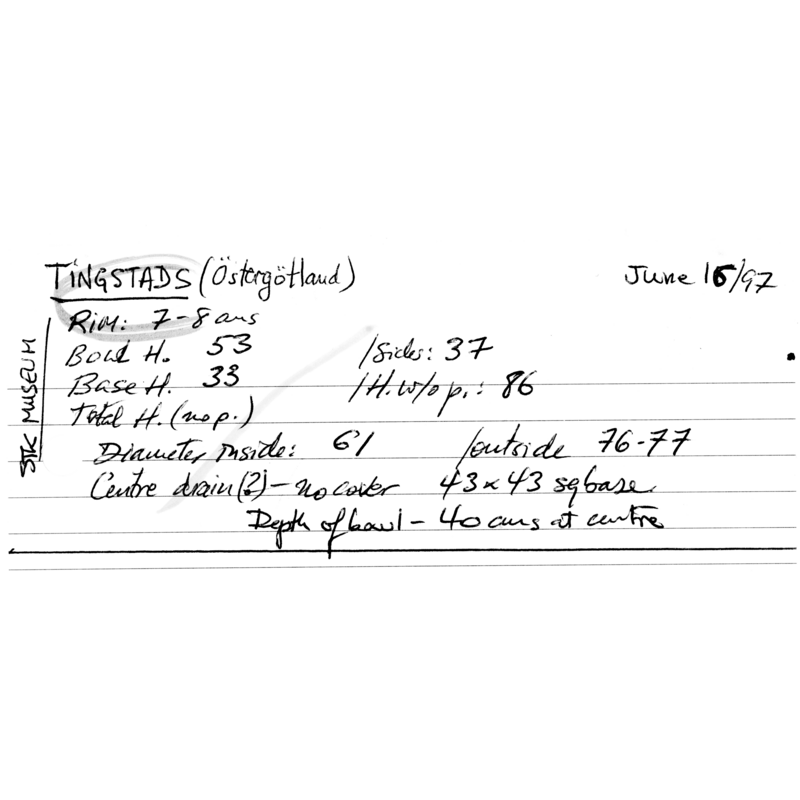 TINGSTADS (Östergötland) June 16/97
Rim: 7-8 cms
Bowl H. 53 /Sides: 37
Base H. 33 /H. w/o p.: 86
Total H. (no p.)
Diameter, inside: 61 /outside 76-77
Centre drain (?) - no cover 43 x 43 sq base
Depth of bowl - 40 cms at centre
STK MUSEUM